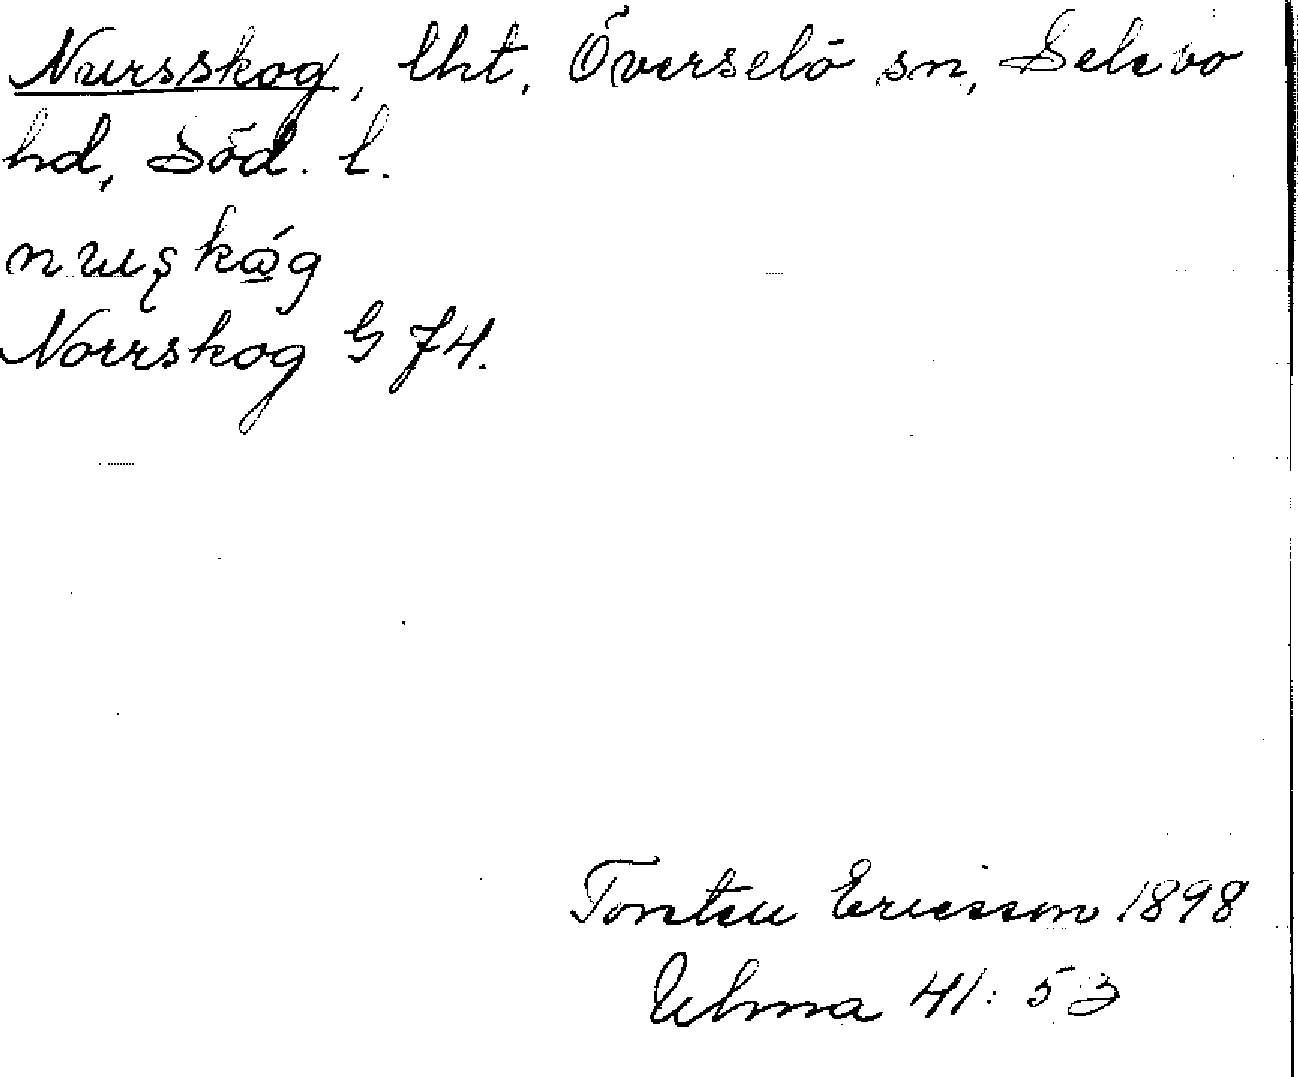 Nursskog, lht, Överselö sn, Selebo
hd, Söd. l.
nuʂkǻg
Norrskog G 74.
Torsten Ericsson 1898
Ulma 41:53